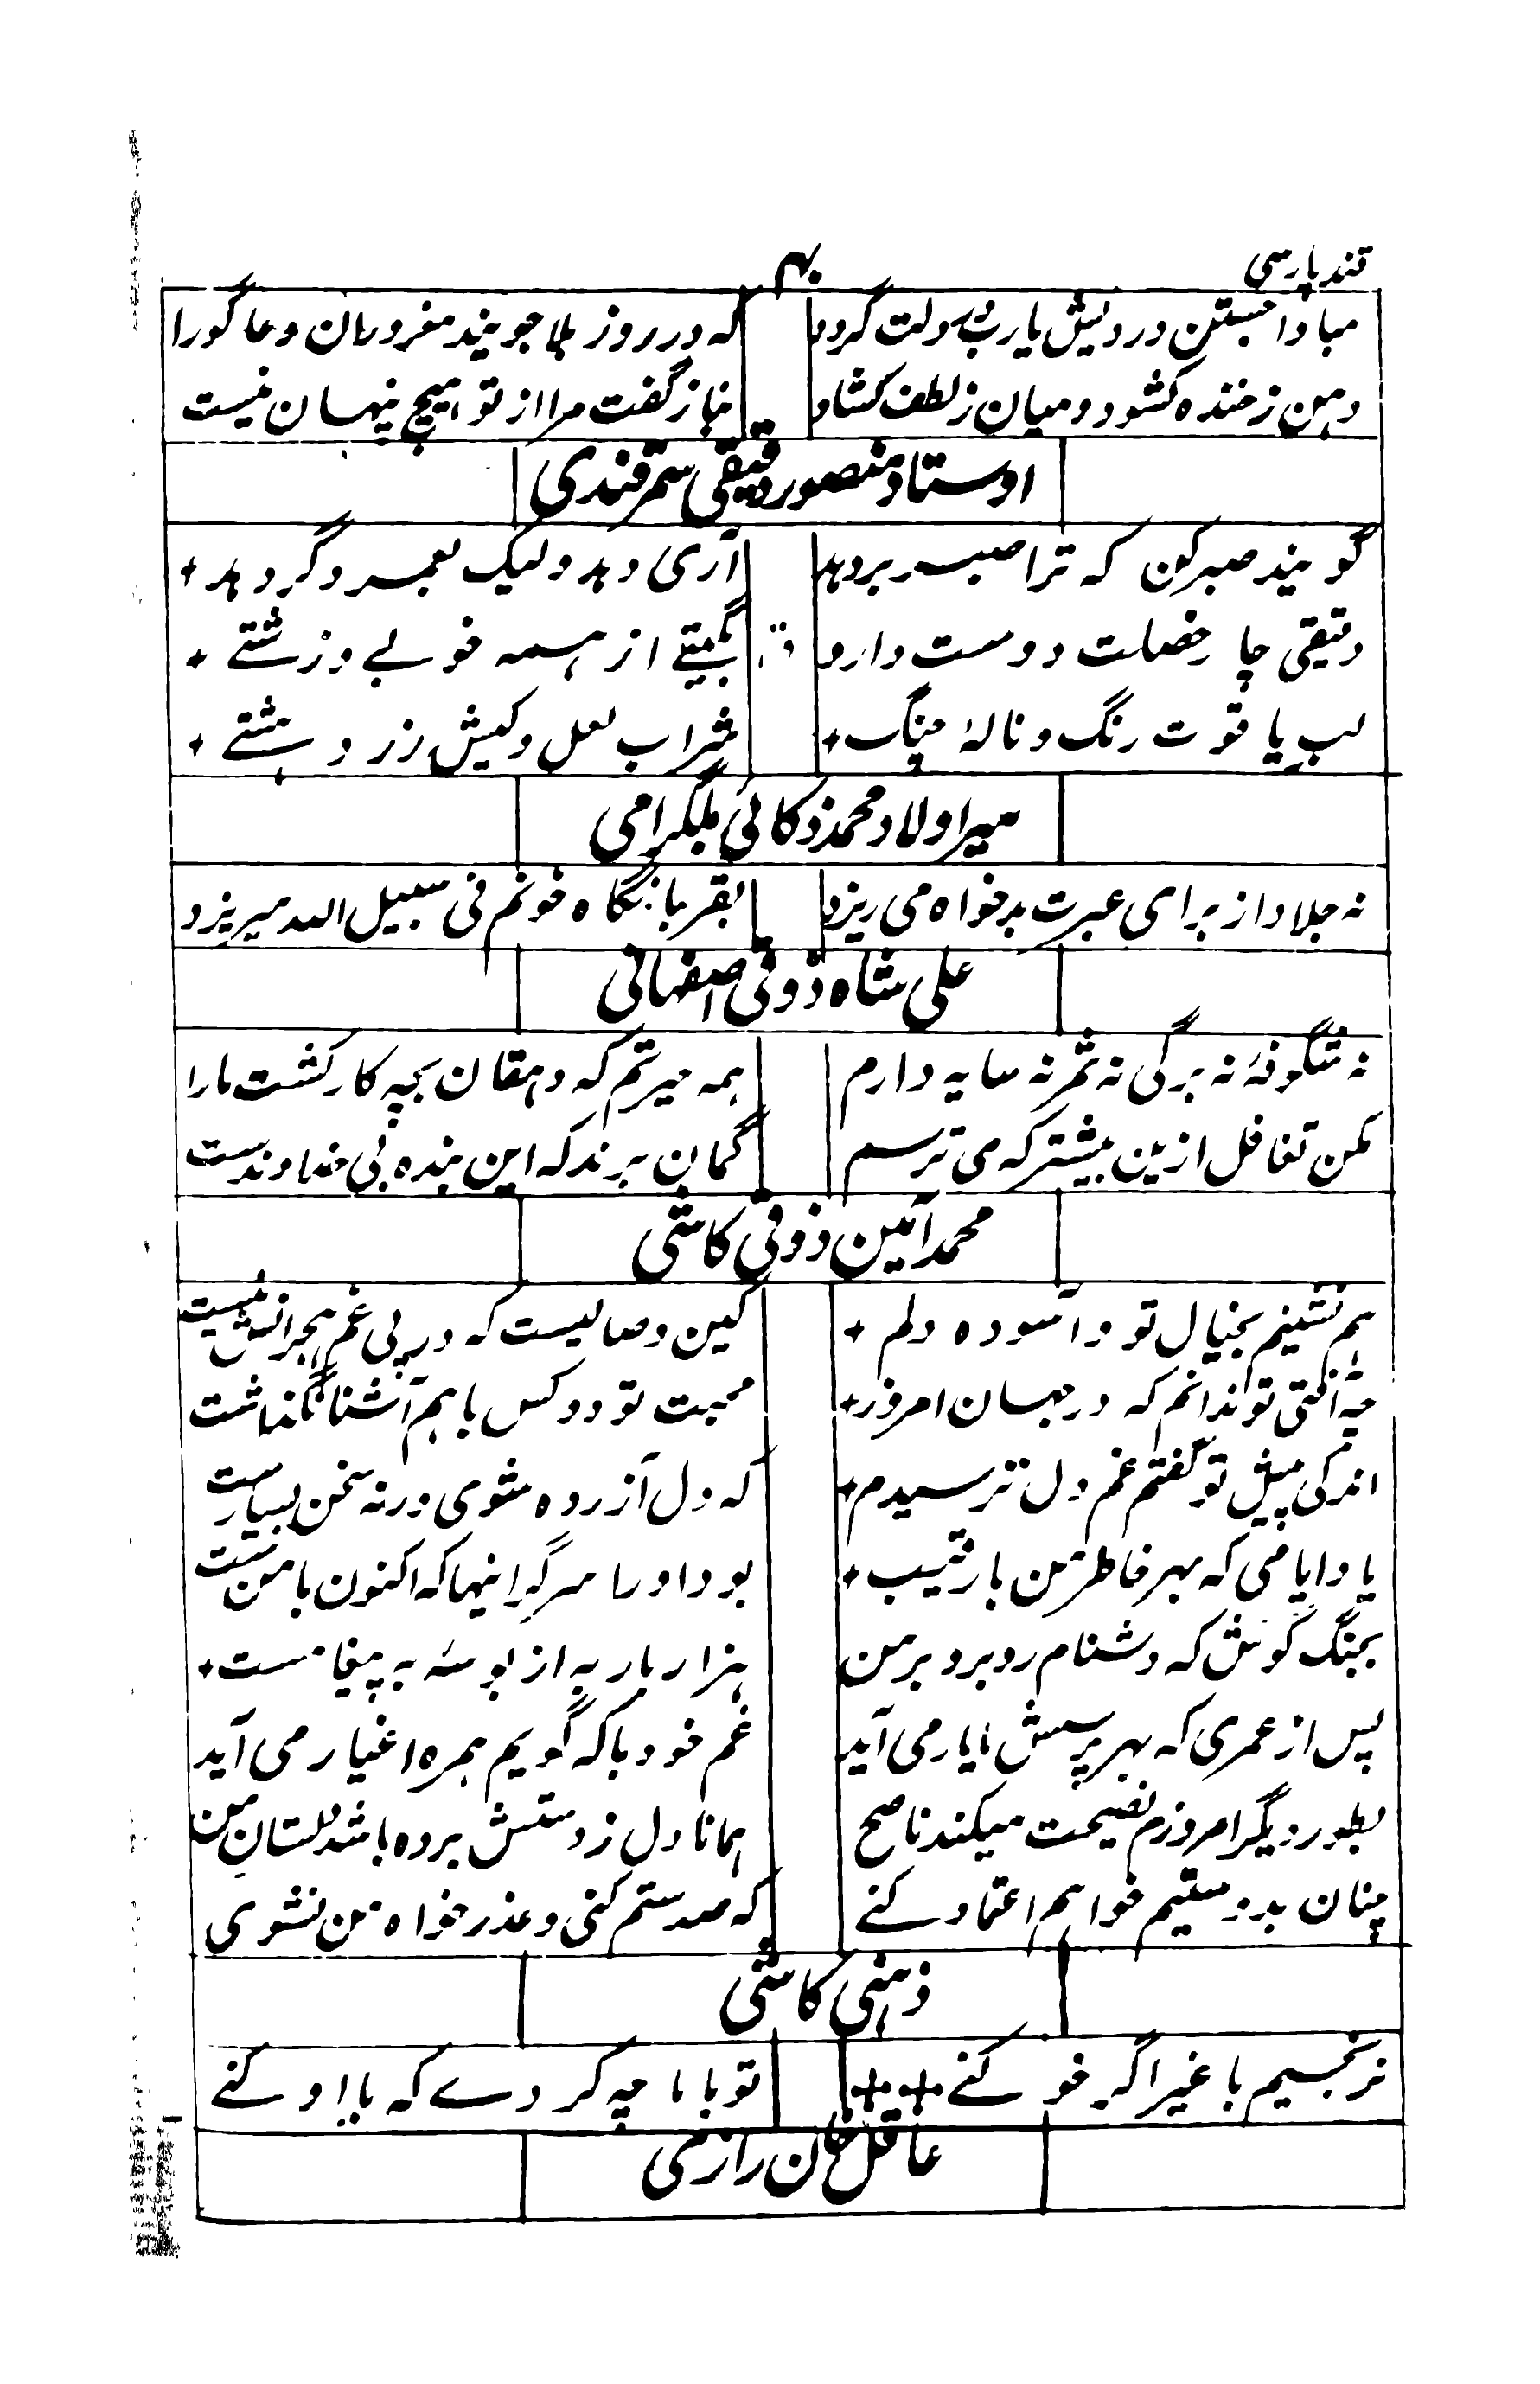 قند پارسی
۴۰
مبادا خستن درویش یا رب گردد که در روز بلا جویند مغروران دعا گو را
دهن ز خنده کشود و میان ز لطف کشاد بناز گفت مرا از تو هیچ پنهان نیست
اوستاد منصور دقیقی سمرقندی
گویند صبر کن که ترا صبر بر دهد آری دهد ولیک بعمر دگر دهد +
دقیقی چار خصلت دوست دارد بگیتے از همه خوبے و زشتے +
لب یاقوت رنگ و نالهٔ چنگ + شراب لعل و کیش زردشتے +
میر اولاد محمد ذکائی بلگرامی
نه جلاد از برای عبرت بدخواه می ریزد بقربانگاه خونم فی سبیل الله میریزد
علی شاه ذوقی اصفهانی
نه شگوفهٔ نه برگی نه ثمر نه سایه دارم همه حیرتم که دهقان بچه کار کشت ما را
مکن تغافل ازین بیشتر که می ترسم گمان برند که این بنده بی خداوندست
محمد امین ذوقی کاشی
هم نشینم بخیال تو و آسوده دلم + کین وصالیست که در پی غم هجرانش نیست
چه آفتی تو ندانم که در جهان امروز + محبت تو دو کس با هم آشنا نگذاشت
اندکی پیش تو گفتم غم دل ترسیدم + که دل آزرده شوی ورنه سخن بسیارست
یاد ایامی که بهر خاطر من با رقیب + بود او را سرگرانیها که اکنون با منست
بجنگ کوش که دشنام روبرو بر من هزار بار به از بوسهٔ به پیغامست +
پس از عمری که بهر پرسش ما یار می آید غم خود با که گویم همره اغیار می آید
بطور دیگر امروزم نصیحت میکند ناصح همانا دل ز دستش برده باشد من
چنان بدوستیم خواهم اعتماد کنے که صد ستم کنی و عذر خواه من نشوی
ذهنی کاشی
نرنجیم با غیر اگر خو کنے ++ تو با ما چه کردے که با او کنے
عاقل خان رازی